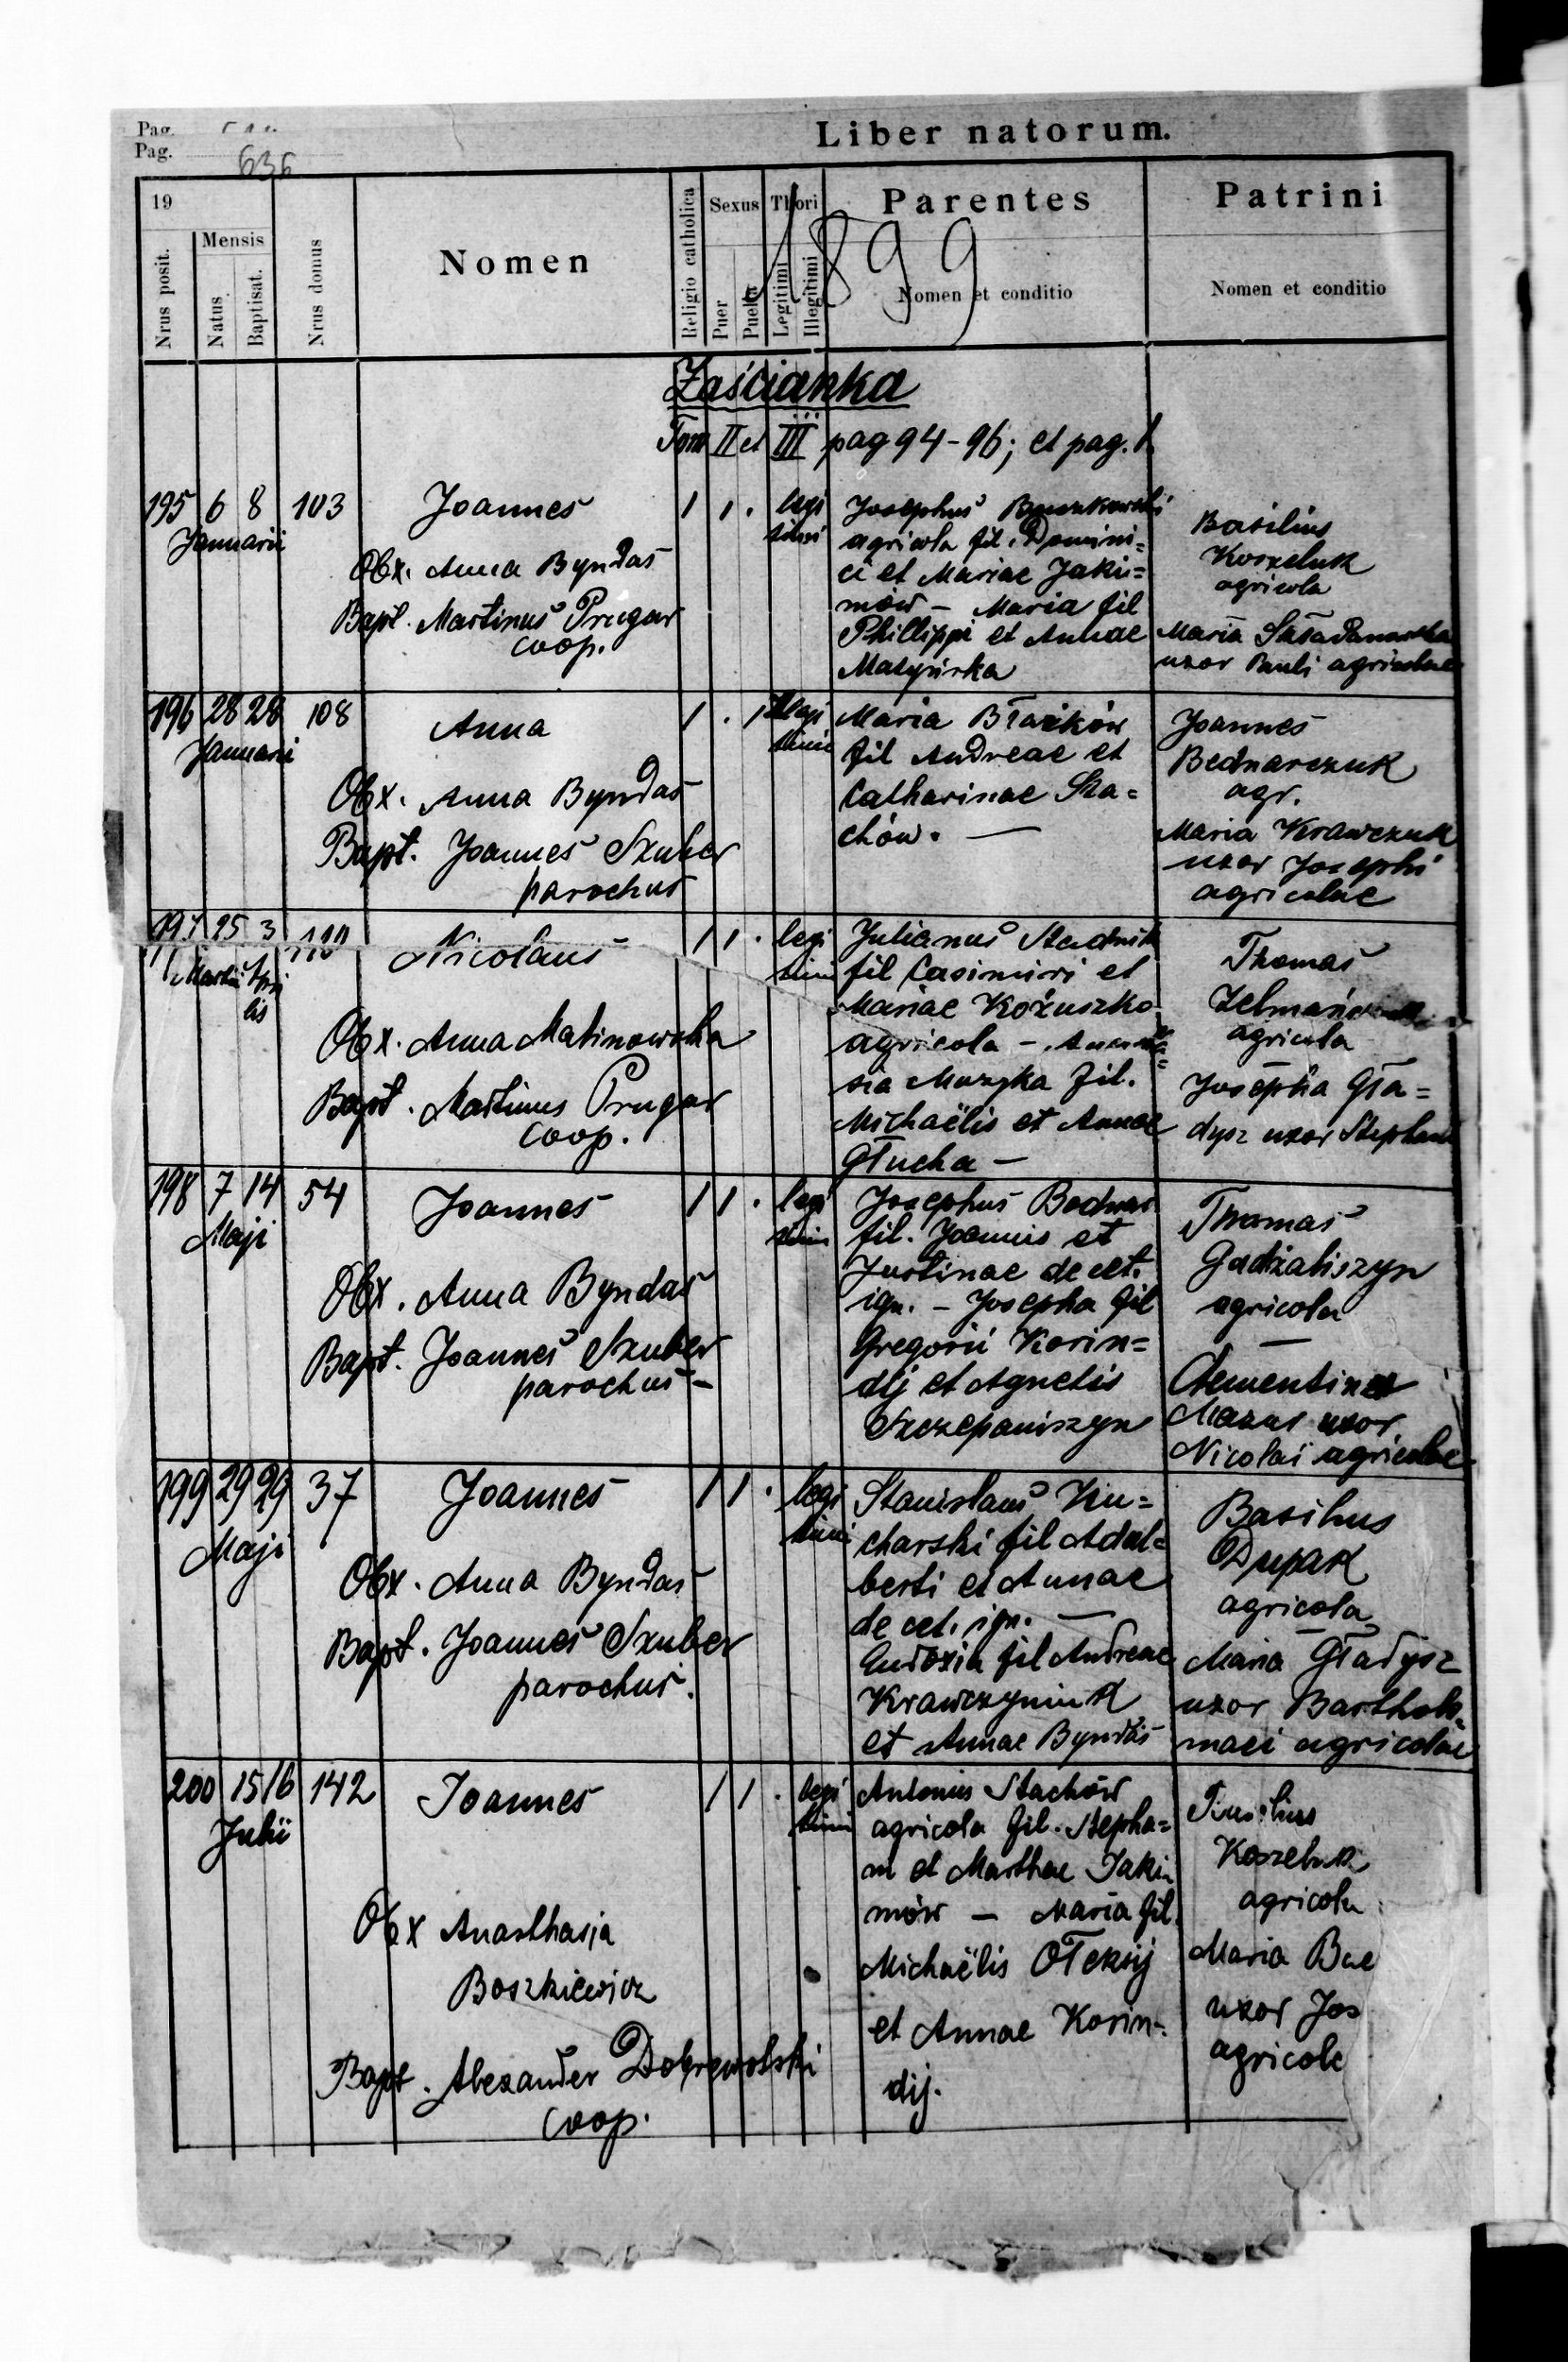 Pag.
Pag. 636
Liber natorum.
19
Nrus posit.
Mensis
Natus
Baptisat.
Nrus domus
Nomen
Religio catholica
Sexus
Puer
Puella
Thori
Legitimi
Illegitimi
Parentes
Nomen et conditio
Patrini
Nomen et conditio
1899
Zaścianka
Tom II et III pag 94-96; et pag. 1.
195 6 8 103
Januarii
Joannes
Obx. Anna Byndas
Bapt. Martinus Prugar
coop.
1 1 . legi
timi
Josephus
agricola fil. Domini=
ci et Mariae Jaki=
mów – Maria fil
Phillippi et Annae
Basilius
Korzeluk
agricola
Maria
uxor Pauli agricolae
196 28 28 108
Januarii
Anna
Obx. Anna Byndas
Bapt. Joannes Szuber
parochus
1 . 1 Illegi
timi
Maria Błazków
fil Andreae et
Catharinae Sta=
chów. —
Joannes
Bednarczuk
agr.
Maria Krawczuk
uxor Josephi
agricolae
197 25 3 110
Martii Apri
lis
Nicolaus
Obx. Anna Malinowska
Bapt. Martinus Prugar
coop.
1 1 . legi
timi
Julianus Stadnik
fil Casimiri et
Mariae Kożuszko
agricola – Anastha=
sia Muzyka fil.
Michaëlis et Annae
Głucha –
Thomas
agricola
Josepha Gła=
dysz uxor Stephani
198 7 14 54
Maji
Joannes
Obx. Anna Byndas
Bapt. Joannes Szuber
parochus –
1 1 . legi
timi
Josephus Bednar
fil. Joannis et
Justinae de cet.
ign. – Josepha fil
Gregorii Korin=
dij et Agnetis
Szczepaniszyn
Thomas
Gadzaliszyn
agricola
—
Clementina
Mazur uxor
Nicolai agricolae
199 29 29 37
Maji
Joannes
Obx. Anna Byndas
Bapt. Joannes Szuber
parochus.
1 1 . legi
timi
Stanislaus Ku=
charski fil Adal=
berti et Annae
de cet. ign. —
Eudoxia fil Andreae
Krawczyniuk
et Annae Byndas
Basilius
Dupak
agricola
Maria Gładysz
uxor Bartholo=
maei agricolae
200 15 16 142
Julii
Joannes
Obx Anasthasia
Boszkiewicz
Bapt. Alexander Dobrowolski
coop.
1 1 . legi
timi
Antonius Stachów
agricola fil. Stepha=
ni et Marthae Jaki
mów – Maria fil.
Michaëlis Ołeksij
et Annae Korin=
dij.
Basilius
Korzeluk
agricola
Maria
uxor Jos
agricolae